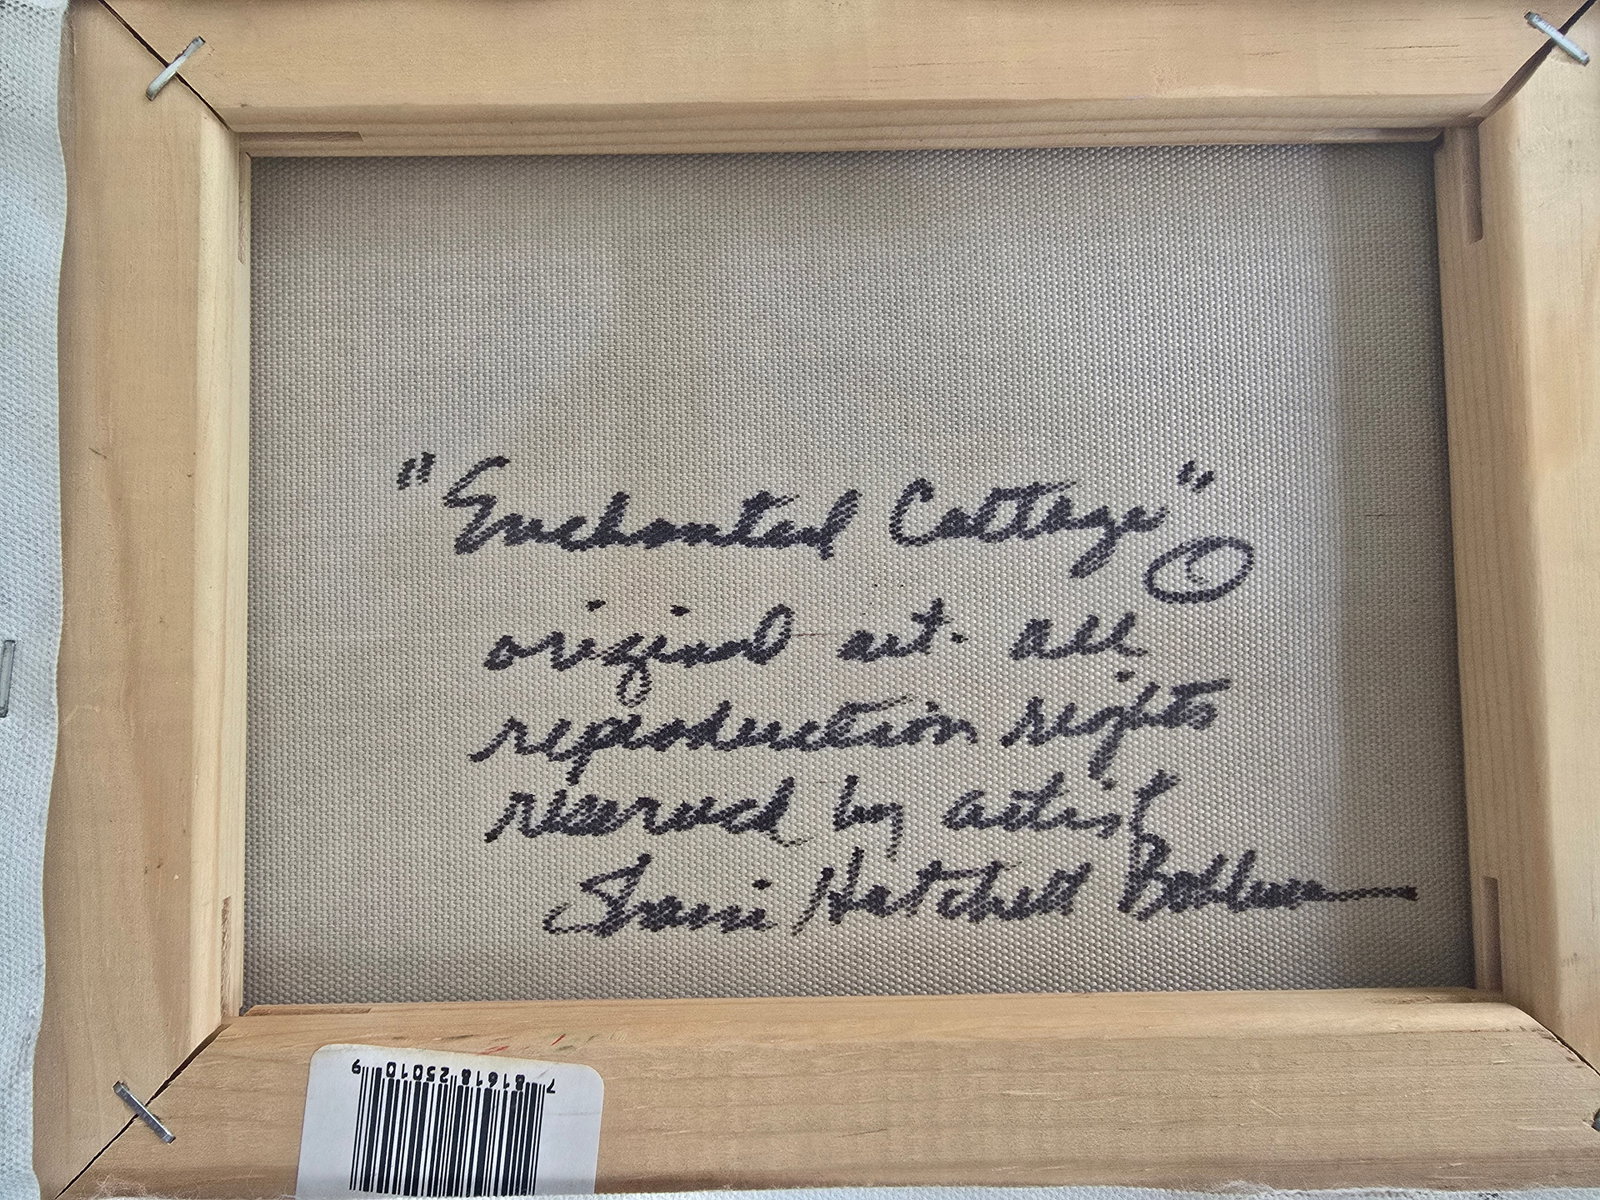 "Enchanted Cottage"
©
original art. all
reproduction rights
reserved by artist
Hatchell
7 81618 25010 9